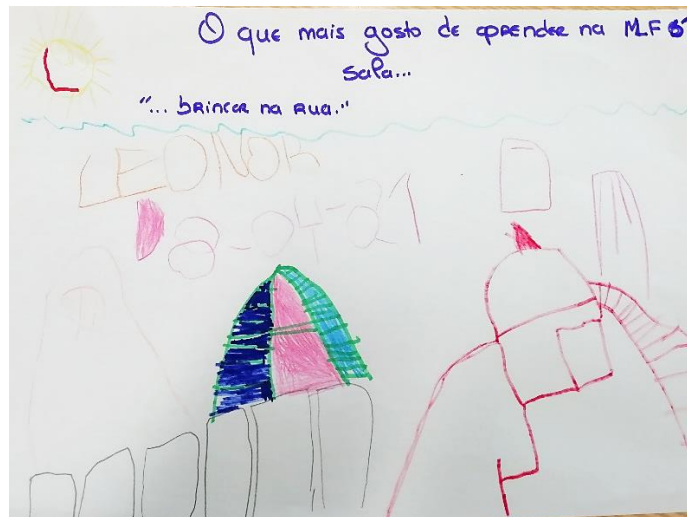 O que mais gosto de aprender na MLF é
sala...
"... brincar na rua."
LEONOR
D 8-04-21